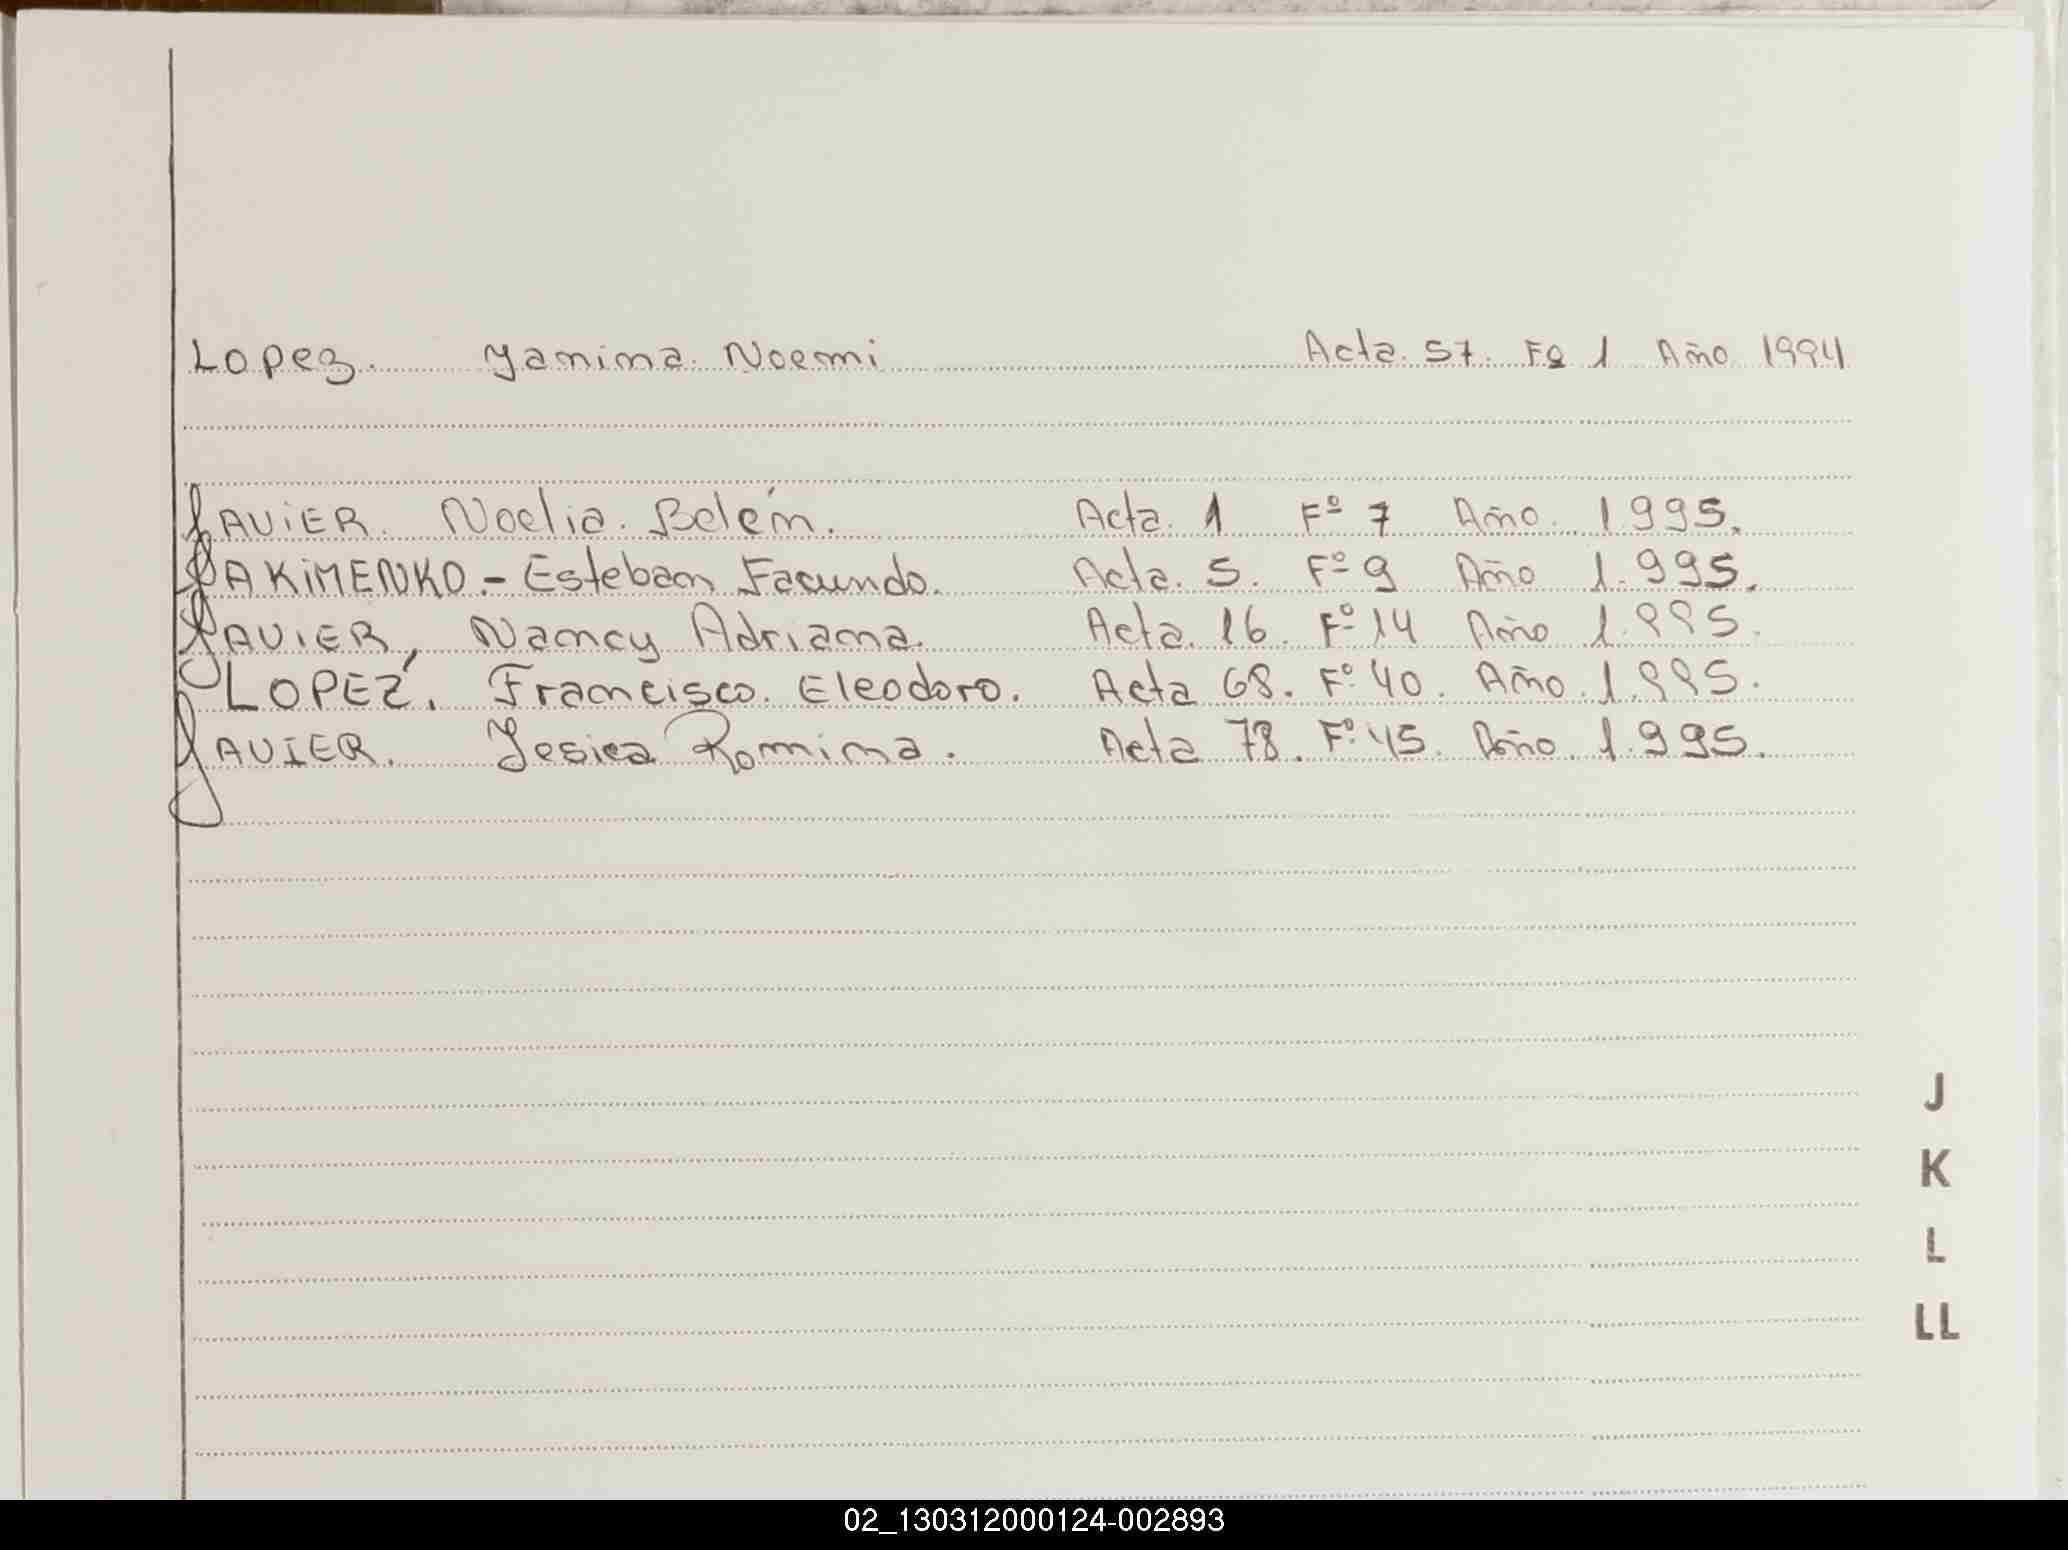 Lopez. Yanina Noemi Acta. 57. Fº 1 Año 1994
JAVIER. Noelia. Belén. Acta. 1 Fº 7 Año. 1995.
JAKIMENKO - Esteban Facundo. Acta. 5. Fº 9 Año 1.995.
JAVIER, Nancy Adriana. Acta. 16. Fº 14 Año 1.995.
LOPEZ. Francisco. Eleodoro. Acta 68. Fº 40. Año. 1.995.
JAVIER. Jesica Romina. Acta 78. Fº 45. Año. 1.995.
J
K
L
LL
02_130312000124-002893